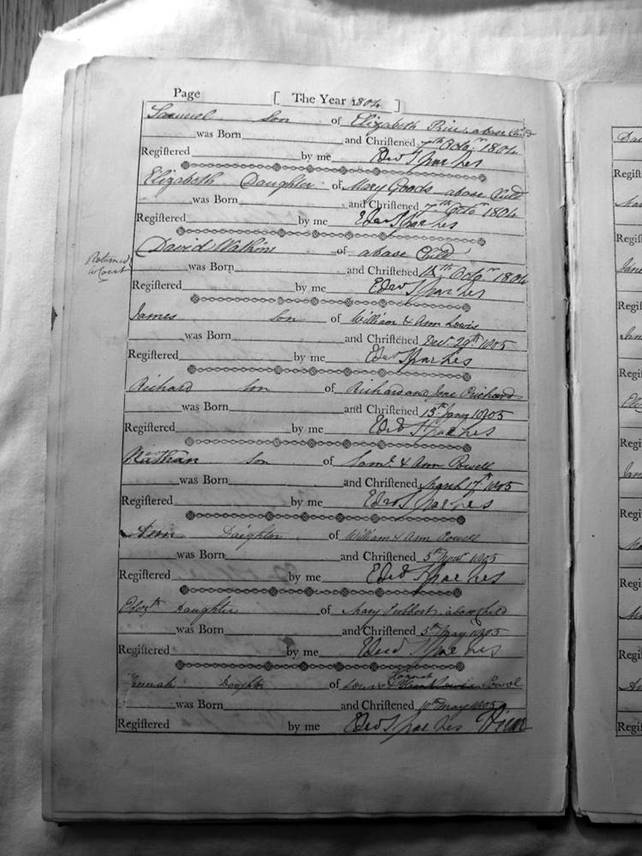 Page [ The Year 1804 ]
Samuel Son of Elizabeth Price a base Child
was Born and Christened 7th Octor 1804
Registered by me Edwd Sparkes
Elizabeth Daughter of Mary Goods a base Child
was Born and Christened 7th Octor 1804
Registered by me Edwd Sparkes
David Watkins of a base Child
was Born and Christened Octor 1804
Registered by me Edwd Sparkes
James son of William & Ann Lewis
was Born and Christened 1805
Registered by me Edwd Sparkes
Richard son of Richard and Jane Prichard
was Born and Christened 13th Jany 1805
Registered by me Edwd Sparkes
Nathan son of Saml & Ann Powell
was Born and Christened March 17th 1805
Registered by me Edwd Sparkes
Ann Daughter of William & Ann Powell
was Born and Christened 5th 1805
Registered by me Edwd Sparkes
daughter of Mary a base child
was Born and Christened 5th May 1805
Registered by me Edwd Sparkes
Daughter of
was Born and Christened May 1805
Registered by me Edwd Sparkes